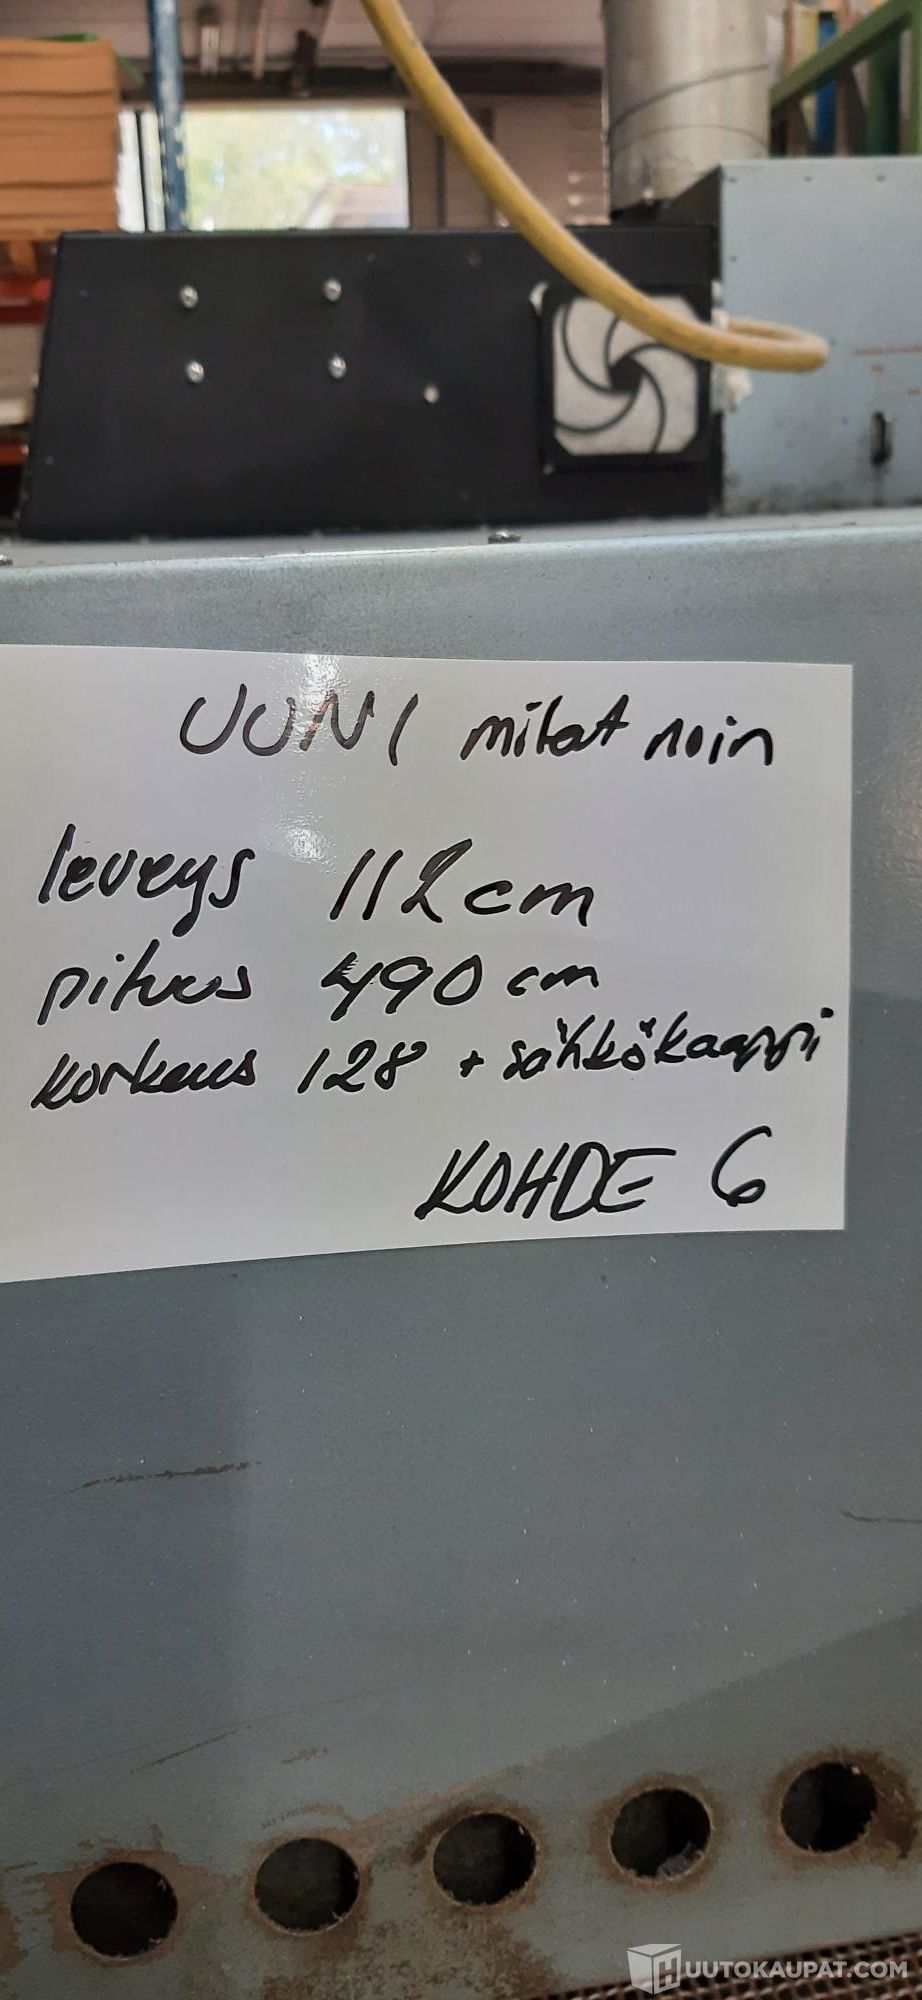 UUNI mitat noin
leveys 112 cm
pituus 490 cm
korkeus 128 + sähkökaappi
KOHDE 6
HUUTOKAUPAT.COM